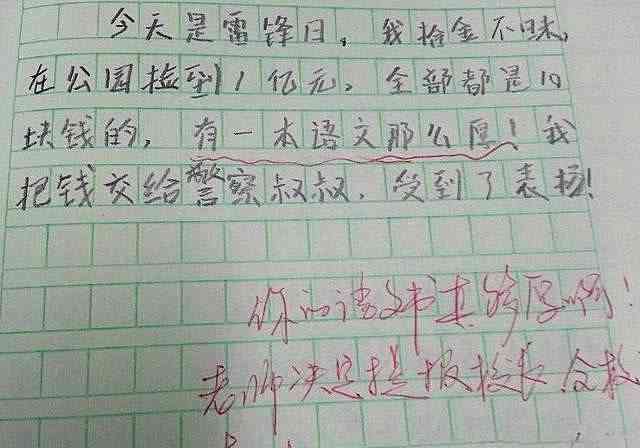 今天是雷锋日，我拾金不昧，
在公园捡到1亿元，全部都是10
块钱的，有一本语文那么厚！我
把钱交给警察叔叔，受到了表扬！
你的语文书真够厚啊！
老师决定提报校长 全校